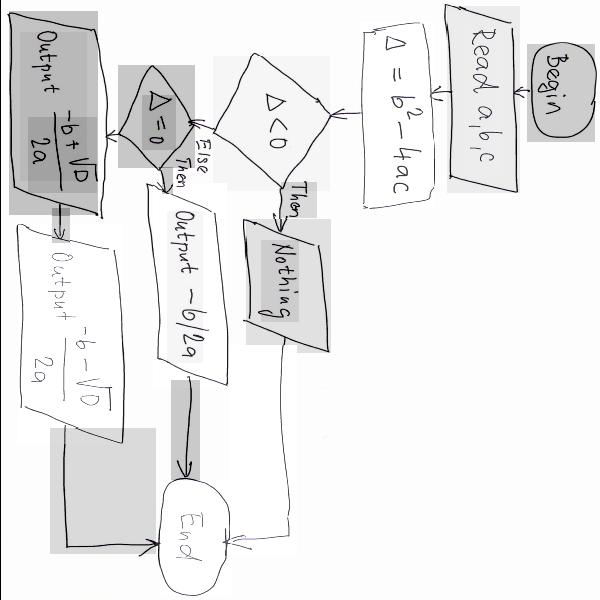 Begin
Read a,b,c
Δ = b² - 4ac
Δ < 0
Then
Nothing
Else
Δ = 0
Then
Output - b/2a
Output -b + √D
2a
Output -b - √D
2a
End